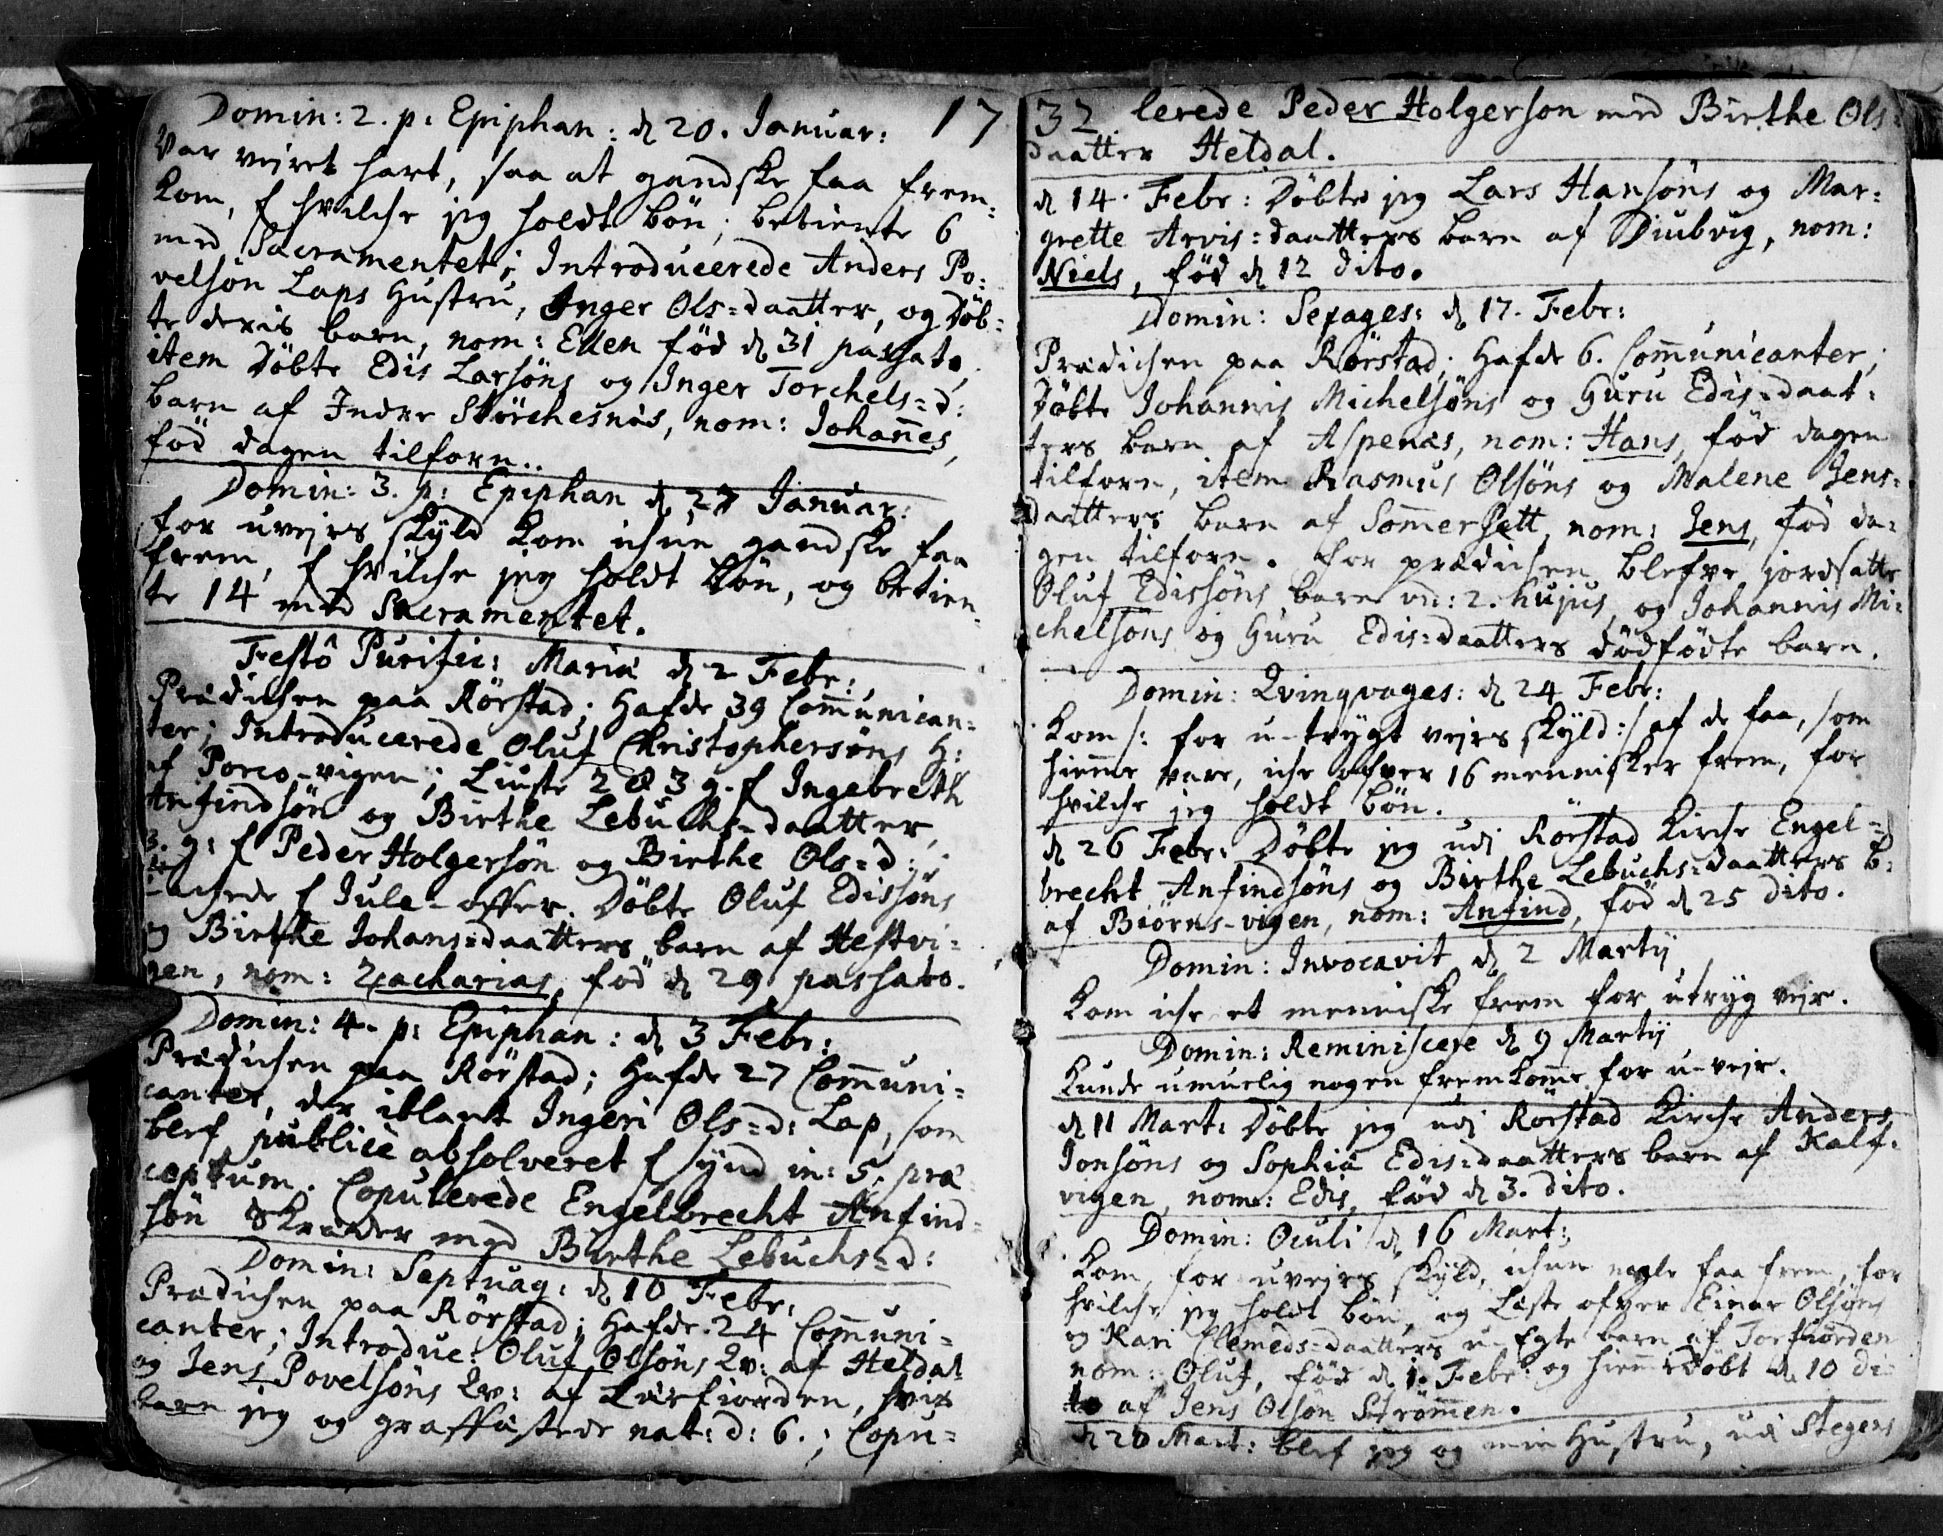 Domin: 2. p: Epiphan: d 20. Januar: 17
Var vejret hart, saa at gandske faa frem-
kom, f hvilche jeg holdt bön; betiente 6
med Sacramentet; Introducerede Anders Po-
velsön Laps Hustru, Inger Ols=daatter, og döb-
te deris barn, nom: Ellen fød d 31 passato,
item döbte Edis Larsöns og Inger Torchels=d:
barn af Indre Störchesnäs, nom: Johannes,
fød dagen tilforn.
Domin: 3. p: Epiphan d 27 Januar:
for uvejrs skyld kom ichun gandske faa
frem, f hvilche jeg holdt bön, og betien-
te 14 med Sacramentet.
Festô Purific: Mariæ d 2 Febr:
Prædichen paa Rörstad; Hafde 39 Communican-
ter; Introducerede Oluf Christophersöns H:
af Porco-vigen; Liuste 2 & 3 g. f Ingebreth
Anfindsön og Birthe Lebuchs=daatter,
3. g: f Peder Holgersön og Birthe Ols=d:;
f Jule-offer. Döbte Oluf Edissöns
og Birthe Johans=daatters barn af Hestvi-
gen, nom: Zacharias, fød d 29 passato.
Domin: 4. p: Epiphan: d 3 Febr:
Prædichen paa Rörstad; Hafde 27 Communi-
canter, der iblant Ingeri Ols=d: Lap, som
blef publicè absolveret f synd in: 5. præ-
ceptum. Copulerede Engelbrecht Anfind-
sön Skræder med Birthe Lebuchs=d:
Domin: Septuag: d 10 Febr:
Prædichen paa Rörstad; Hafde 24 Communi-
canter; Introduc: Oluf Olsöns Qv: af Heldal
og Jens Povelsöns Qv: af Leirfiorden, hvis
barn jeg og graffæstede nat: d: 6.; Copu-
32 lerede Peder Holgerson med Birthe Ols-
daatter Heldal.
d 14. Febr: Döbte jeg Lars Hansöns og Mar-
grette Arvis=daatters barn af Diubvig, nom:
Niels, fød d 12 dito.
Domin: Sexages: d 17. Febr:
Prædichen paa Rörstad; Hafde 6. Communicanter;
Döbte Johannis Michelsöns og Guru Edis=daat-
ters barn af Aspenæs, nom: Hans, fød dagen
tilforn, item Rasmus Olsöns og Malene Jens-
daatters barn af Sommersett, nom: Jens, fød da-
gen tilforn. For prædichen blefve jordsatte
Oluf Edissöns barn vd: 2. hujus, og Johannis Mi-
chelsöns og Guru Edis=daatters dödfödte barn.
Domin: Qvinqvages: d 24 Febr:
Kom /: for u-trygt vejrs skyld :/ af de faa, som
hiemme vare, iche ofver 16 mennisker frem, for
hvilche jeg holdt bön.
d 26 Febr: Döbte jeg udj Rörstad Kirche Engel-
brecht Anfindsöns og Birthe Lebuchs=daatters b:
af Biörns-vigen, nom: Anfind, fød d 25 dito.
Domin: Invocavit d 2 Martij
Kom iche et menniske frem for utryg vejr.
Domin: Reminiscere d 9 Martij
Kunde umuelig nogen fremkomme for u-vejr.
d 11 Mart: Döbte jeg udj Rörstad Kirche Anders
Jonsöns og Sophia Edis=daatters barn af Kalf-
vigen, nom: Edis, fød d 3. dito.
Domin: Oculi d 16 Mart:
Kom, for uvejrs skyld, ichun nogle faa frem, for
hvilche jeg holdt bön, og Læste ofver Einar Olsöns
og Kari Clemeds=daatters u-Egte barn af Torfiorden
nom: Oluf, fød d 1. Febr: og hiemmedöbt d 10 di-
to af Jens Olsön Strömmen.
d 20 Mart: blef jeg og min Hustru, udi Stegens